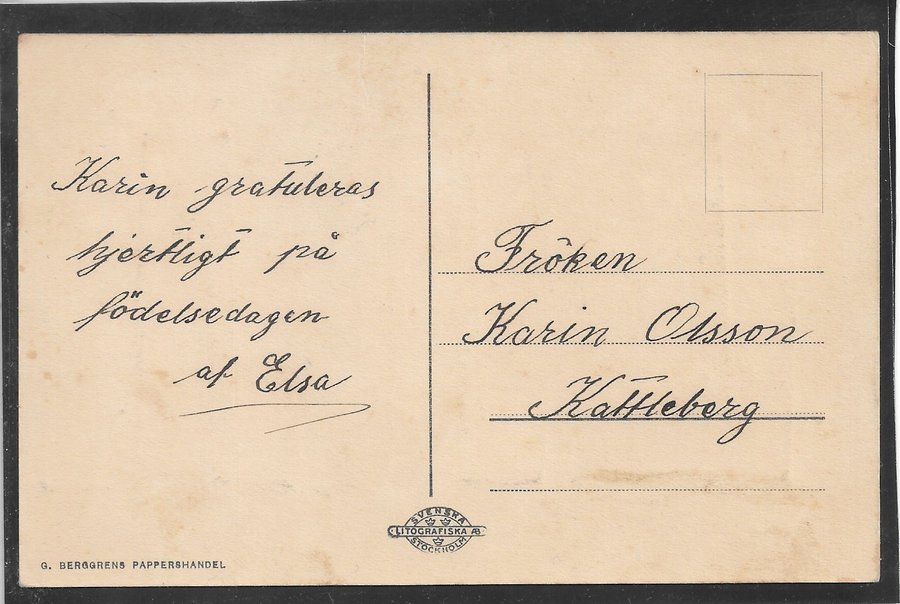 Karin gratuleras
hjertligt på
födelsedagen
af Elsa
Fröken
Karin Olsson
Kattleberg
SVENSKA
LITOGRAFISKA AB
STOCKHOLM
G. BERGGRENS PAPPERSHANDEL